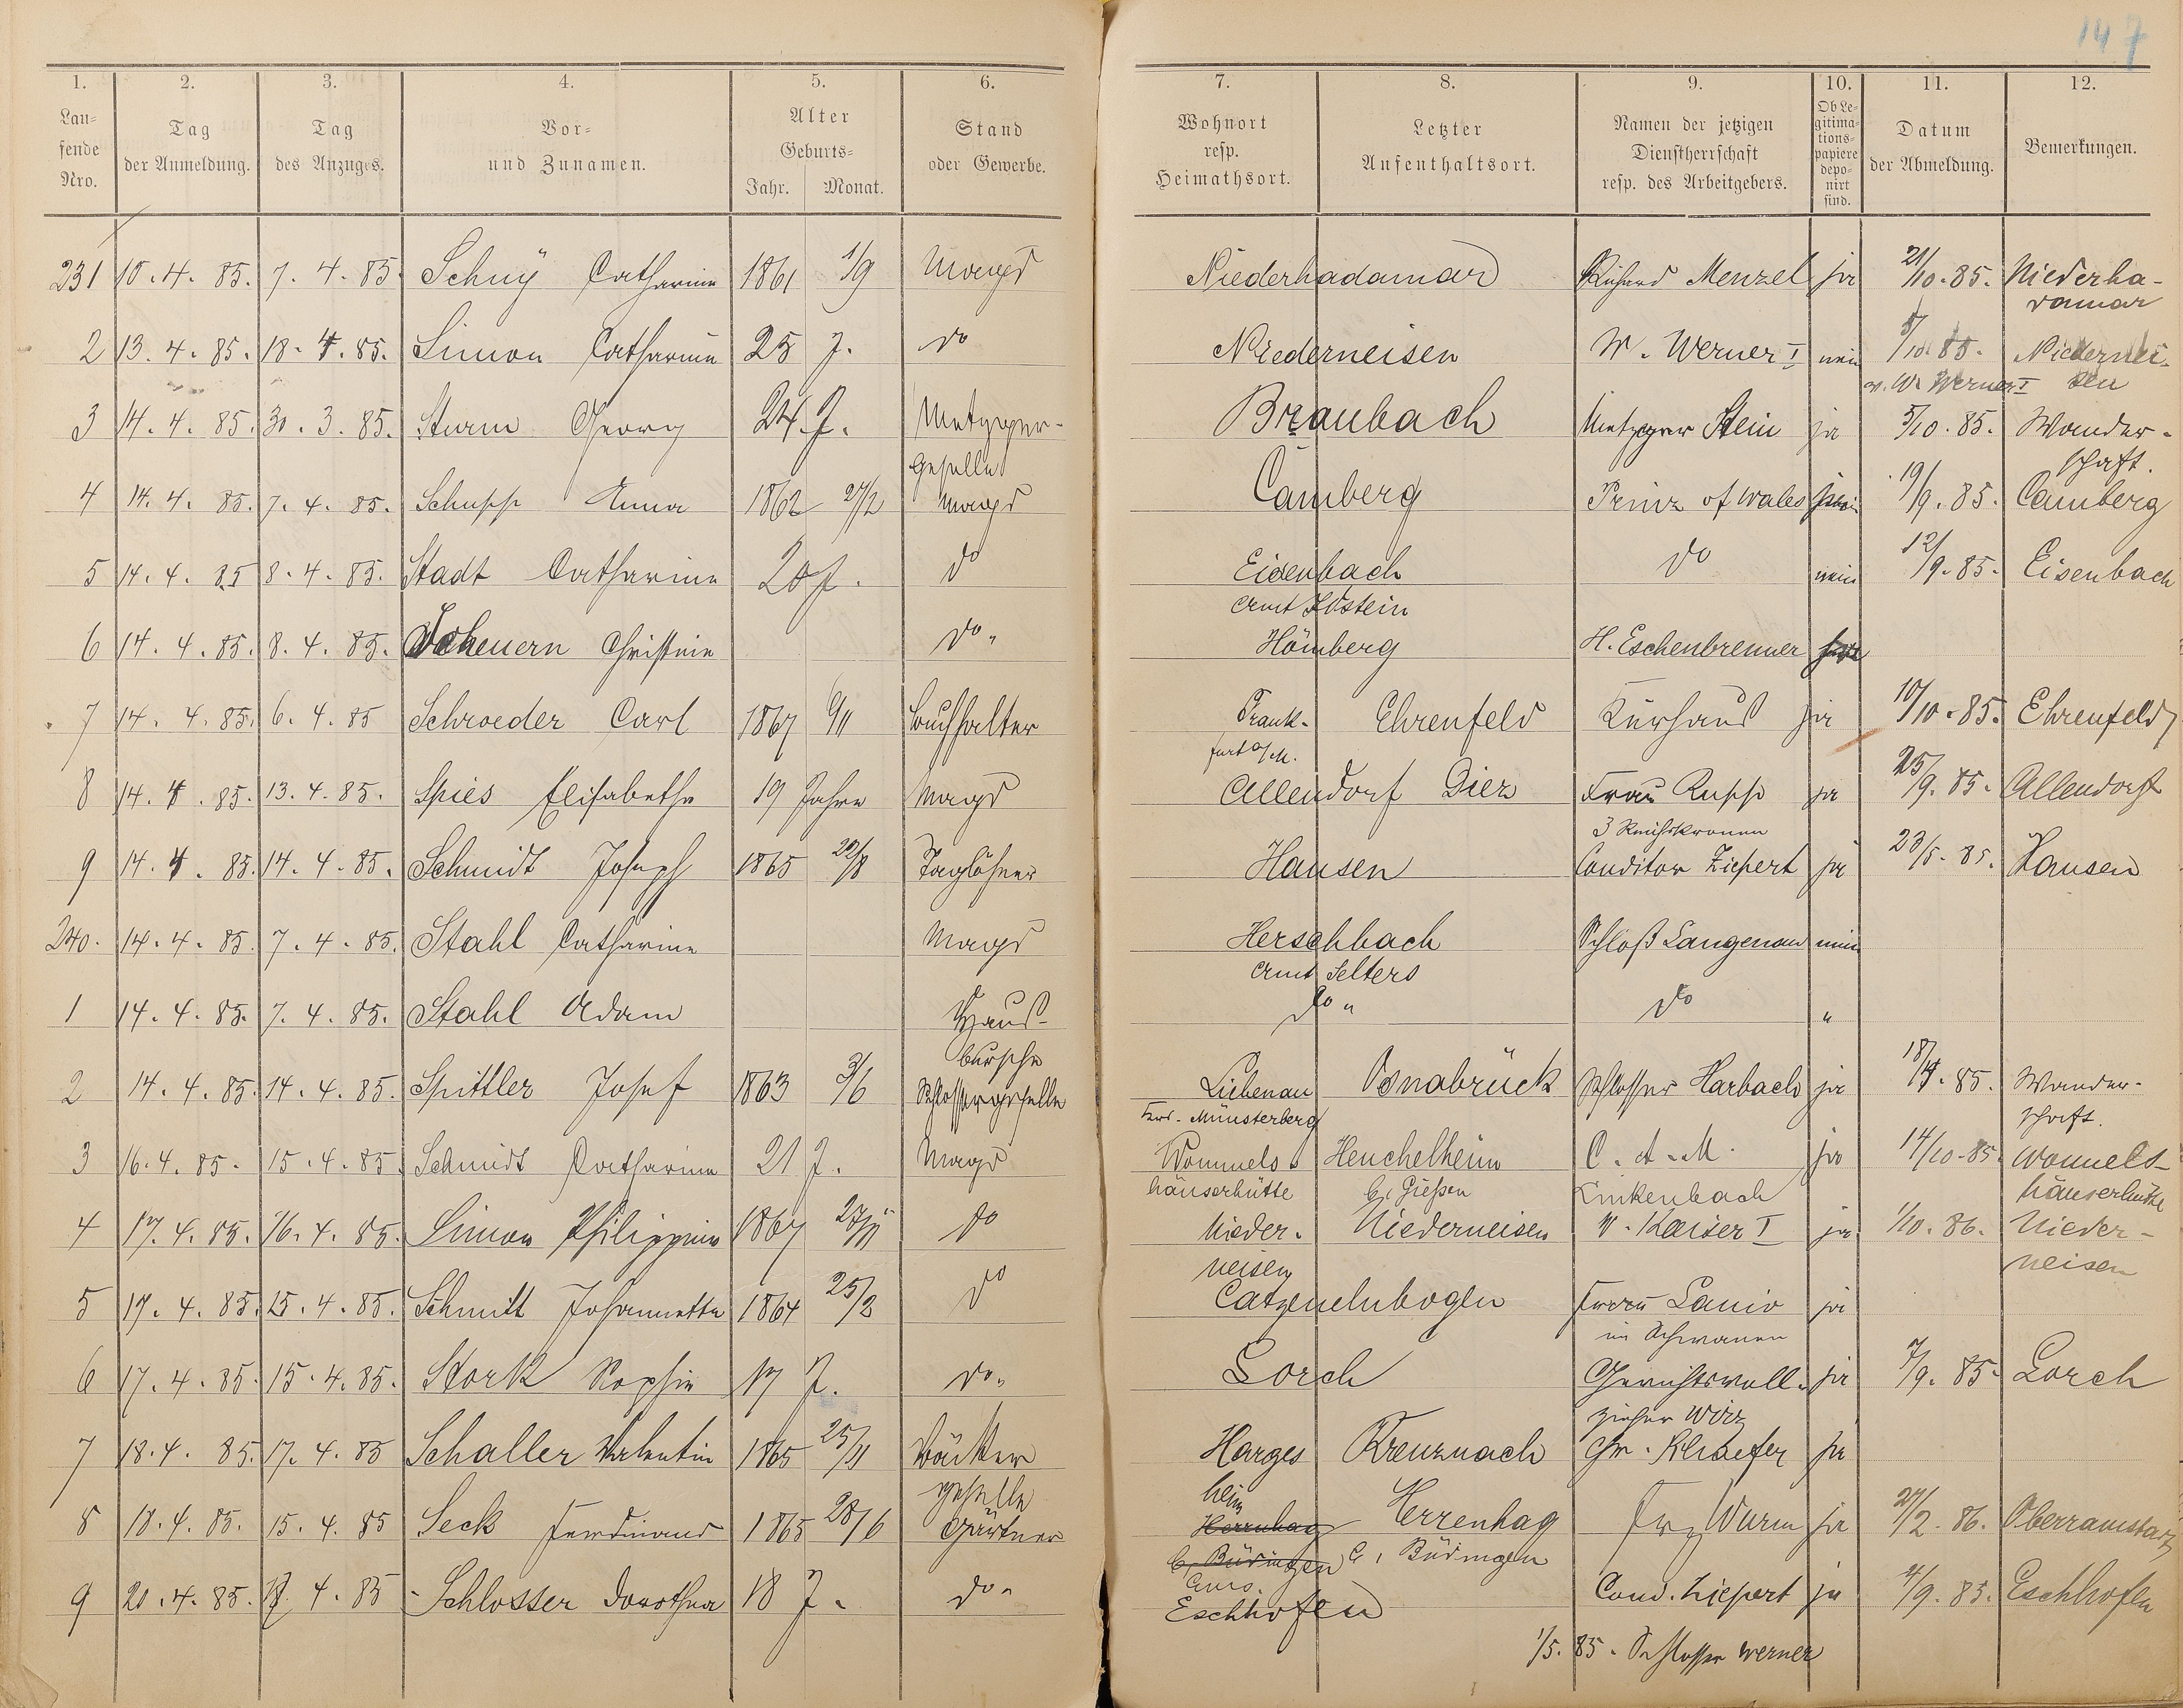 147
1. 2. 3. 4. 5. 6. 7. 8. 9. 10. 11. 12.
Lau=
fende
Nro.
Tag
der Anmeldung.
Tag
des Anzuges.
Vor=
und Zunamen.
Alter
Geburts=
Jahr. Monat.
Stand
oder Gewerbe.
Wohnort
resp.
Heimathsort.
Letzter
Aufenthaltsort.
Namen der jetzigen
Dienstherrschaft
resp. des Arbeitgebers.
Ob Le=
gitima=
tions=
papiere
depo=
nirt
sind.
Datum
der Abmeldung.
Bemerkungen.
231 10. 4. 85. 7. 4. 85 Schuy Catharine 1861 1/9 Magd Niederhadamar Richard Menzel ja 21/10. 85. Niederha-
damar
2 13. 4. 85. 18. 4. 85. Simon Catharine 25 J. do Niederneisen W. Werner I nein 5/10 85. Niedernei-
v. W. Werner I sen
3 14. 4. 85. 30. 3. 85. Sturm Georg 24. J. Metzger- Braubach Metzger Stein ja 5/10. 85. Wander-
geselle schaft.
4 14. 4. 85. 7. 4. 85. Schupp Anna 1862 27/2 Magd Camberg Prinz of Wales 19/9. 85. Camberg
5 14. 4. 85 8. 4. 85. Stadt Catharine 20 J. do Eisenbach do nein 12/9. 85. Eisenbach
Amt Idstein
6 14. 4. 85. 8. 4. 85. Scheuern Christine do. Hömberg H. Eschenbrenner
7 14. 4. 85. 6. 4. 85 Schroeder Carl 1867 9/11 Buchhalter Frank- Ehrenfeld Kurhaus ja 10/10. 85. Ehrenfeld
furt a/M.
8 14. 4. 85. 13. 4. 85. Spies Elisabethe 19 Jahre Magd Allendorf Diez Frau Rupp ja 25/9. 85. Allendorf
3 Reichskronen
9 14. 4. 85. 14. 4. 85. Schmidt Joseph 1865 20/8 Taglöhner Hausen Conditor Ziepert ja 23/5. 85. Hausen
240. 14. 4. 85. 7. 4. 85. Stahl Catharine Magd Herschbach Schloß Langenau nein
Amt Selters
1 14. 4. 85. 7. 4. 85. Stahl Adam Haus- do " do "
bursche
2 14. 4. 85. 14. 4. 85. Spittler Josef 1863 3/6 Schlossergeselle Liebenau Osnabrück Schlosser Harbach ja 18/4. 85. Wander-
Münsterberg schaft.
3 16. 4. 85. 15. 4. 85. Schmidt Catharine 21 J. Magd Wommels- Heuchelheim C. A. M. ja 14/10. 85. Wommels-
häuserhütte b. Gießen Linkenbach häuserhütte
4 17. 4. 85. 16. 4. 85. Simon Philippine 1867 do Nieder- Niederneisen W. Kaiser I ja 1/10. 86. Nieder-
neisen neisen
5 17. 4. 85. 15. 4. 85. Schmitt Johannette 1864 25/2 do Catzenelnbogen Frau Lanio ja
im Schwanen
6 17. 4. 85. 15. 4. 85. Stork Sophie 17 J. do. Lorch Gerichtsvoll- ja 7/9. 85. Lorch
zieher Wirz
7 18. 4. 85. 17. 4. 85 Schaller Valentin 1865 25/11 Bäcker Harges Kreuznach Schaefer ja
geselle heim
8 18. 4. 85. 15. 4. 85 Seck Ferdinand 1865 28/6 Gärtner Herrenhag Herrenhag Frz Wurm ja 27/2. 86. Oberramstadt
b. Büdingen b. Büdingen
9 20. 4. 85. 17. 4. 85 Schlosser Dorothea 18 J. do. Eschhofen Cond. Ziepert ja 4/9. 85. Eschhofen
1/5. 85. Schlosser Werner